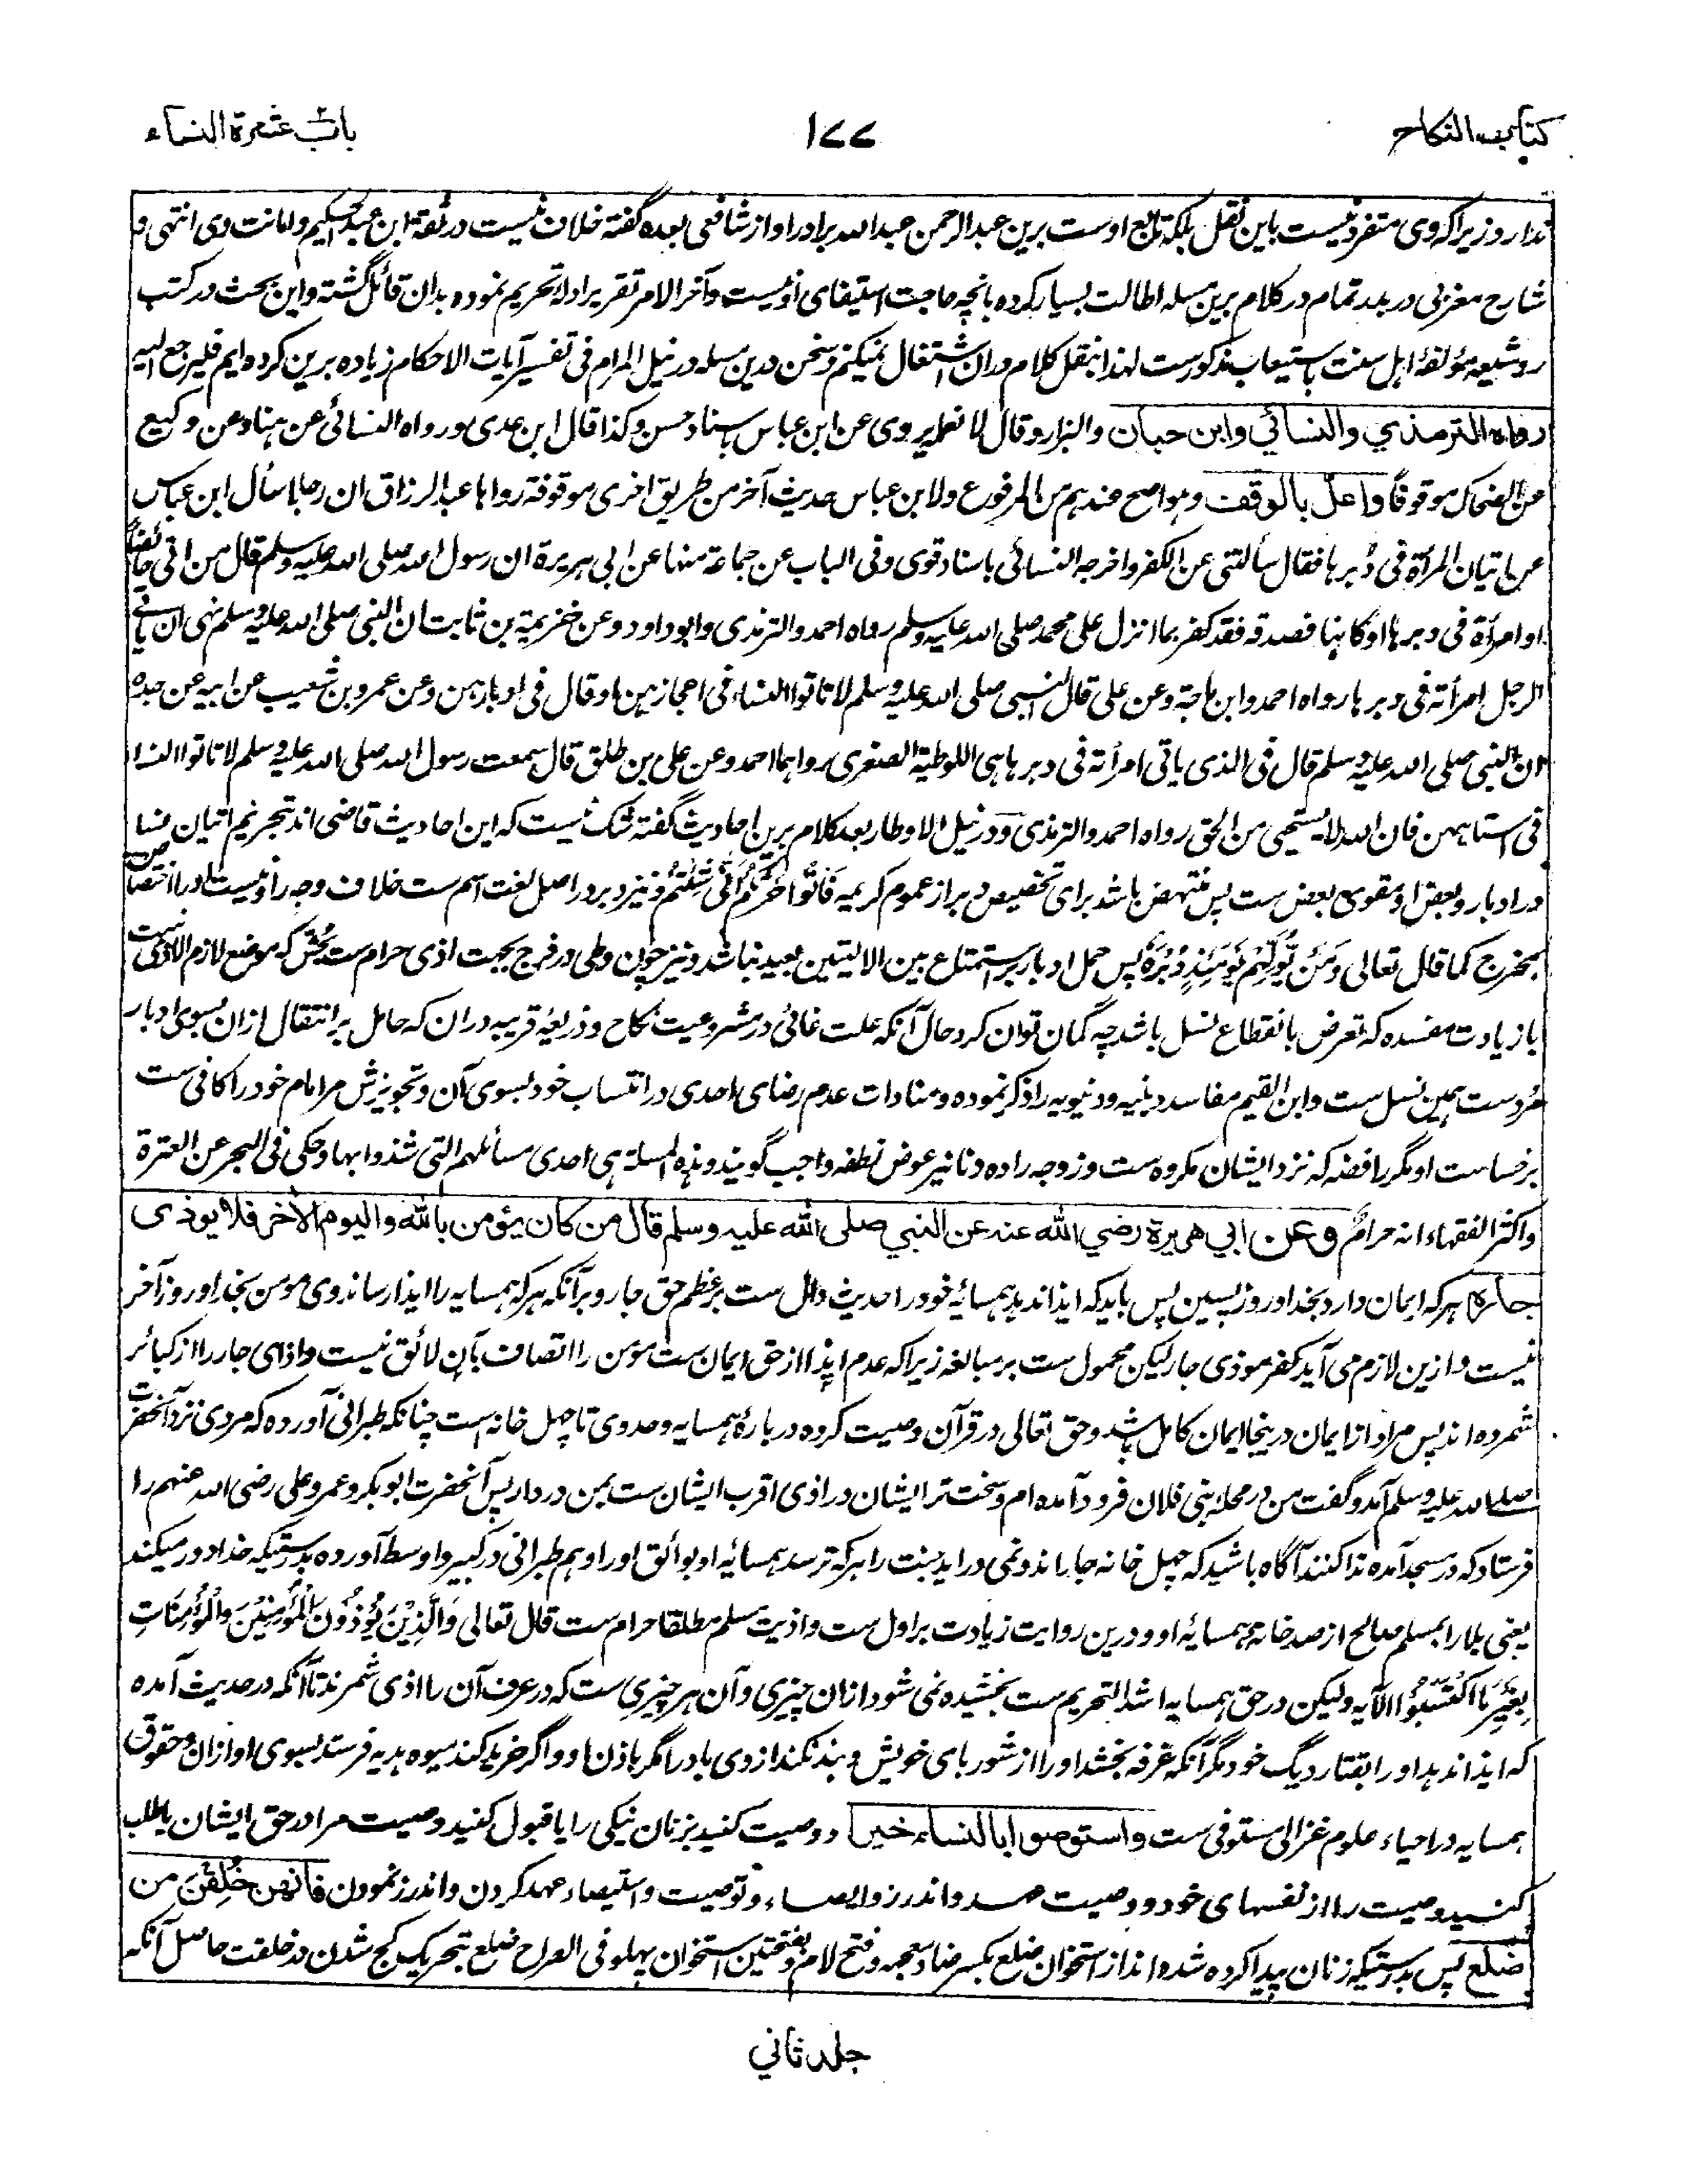 كتاب النكاح
١٧٧
باب عشرة النساء
ندارد زیراکه وی متفرد نیست باین نقل بلکه تابع اوست برین عبدالرحمن عبدالله برادر او از شافعی بعده گفته خلاف نیست در ثقة ابن عبدالحکیم و امانت وی انتهی و
شارح مغربی در بدر تمام در کلام برین مسله اطالت بسیار کرده بانچه حاجت استیفای او نیست و آخر الامر تقریر ادله تحریم نموده بدان قائل گشته و این بحث در کتب
و شیعه مؤلفهٔ اهل سنت باستیعاب مذکورست لهذا بنقل کلام دران اشتغال نمیکنم و سخن درین مسله در نیل المرام فی تفسیر آیات الاحکام زیاده برین کرده ایم فلیرجع الیه
رواه الترمذي والنسائي وابن حبان والبزار وقال لا نعلمه یروی عن ابن عباس باسناد حسن وکذا قال ابن عدی ورواه النسائی عن هناد عن وکیع
عن الضحاک موقوفا واعل بالوقف وهو اصح عندهم من المرفوع ولابن عباس حدیث آخر من طریق اخری موقوفة رواها عبدالرزاق ان رجلا سأل ابن عباس
عن اتیان المرأة فی دبرها فقال سألتنی عن الکفر واخرجه النسائی باسناد قوی وفی الباب عن جماعة منها عن ابی هریرة ان رسول الله صلی الله علیه وسلم قال من اتی حائضا
او امرأة فی دبرها او کاهنا فصدقه فقد کفر بما انزل علی محمد صلی الله علیه وسلم رواه احمد والترمذی وابوداود وعن خزیمة بن ثابت ان النبی صلی الله علیه وسلم نهی ان یاتی
الرجل امرأته فی دبرها رواه احمد وابن ماجة وعن علی قال النبی صلی الله علیه وسلم لا تاتوا النساء فی اعجازهن او قال فی ادبارهن وعن عمرو بن شعیب عن ابیه عن جده
ان النبی صلی الله علیه وسلم قال فی الذی یاتی امرأته فی دبرها هی اللوطیة الصغری رواهما احمد وعن علی بن طلق قال سمعت رسول الله صلی الله علیه وسلم لا تاتوا النساء
فی استاههن فان الله لا یستحیی من الحق رواه احمد والترمذی و در نیل الاوطار بعد کلام برین احادیث گفته شک نیست که این احادیث قاضی اند بتحریم اتیان نسا
در ادبار و بعض او مقوی بعض ست پس منتهض باشد برای تخصیص دبر از عموم کریمه فَأْتُوا حَرْثَكُمْ أَنَّى شِئْتُمْ و نیز دبر در اصل لغت اسم ست خلاف وجه را و نیست او را اختصاص
بمخرج کما قال تعالی وَمَنْ يُوَلِّهِمْ يَوْمَئِذٍ دُبُرَهُ پس حمل ادبار بر استمتاع بین الالیتین بعید نباشد و نیز چون وطی در فرج بجهت اذی حرام ست پس که موضع لازم الاذی ست
بازیادت مفسده که تعرض بانقطاع نسل باشد چه گمان توان کرد حال آنکه علت غائی در مشروعیت نکاح و ذریعهٔ قریبه دران که حامل بر انتقال ازان بسوی ادبار
مُردست همین نسل ست و ابن القیم مفاسد دینیه و دنیویه را ذکر نموده و منادات عدم رضای احدی در انتساب خود بسوی آن و تجویزش مر امام خود را کافی ست
بر خساست او مگر رافضه که نزد ایشان مکروه ست و زوجه را ده دنانیر عوض نطفه واجب گویند وهذه المسلة هی احدی مسائلهم التی شذوا بها وحکی فی البحر عن العترة
واکثر الفقهاء انه حرام وعن ابي هريرة رضي الله عنه عن النبي صلى الله عليه وسلم قال من كان يؤمن بالله واليوم الآخر فلا يوذى
جاره هر که ایمان دارد بخدا و روز پسین پس باید که ایذا ندهد همسائهٔ خود را حدیث دال ست بر عظم حق جار و بر آنکه هر که همسایه را ایذا رساند وی مومن بخدا و روز آخر
نیست و ازین لازم می آید کفر موذی جار لیکن محمول ست بر مبالغه زیراکه عدم ایذا از حق ایمان ست مومن را اتصاف بآن لائق نیست و اذای جار را از کبائر
شمرده اند پس مراد از ایمان درینجا ایمان کامل باشد و حق تعالی در قرآن وصیت کرده دربارهٔ همسایه و حد وی تا چهل خانه است چنانکه طبرانی آورده که مردی نزد آنحضرت
صلی الله علیه وسلم آمد و گفت من در محلهٔ بنی فلان فرود آمده ام و سخت تر ایشان در اذی اقرب ایشان ست بمن در دار پس آنحضرت ابوبکر و عمر و علی رضی الله عنهم را
فرستاد که در مسجد آمده ندا کنند آگاه باشید که چهل خانه جار اند و نمی دراید جنت را هر که ترسد همسائهٔ او بوائق او را و هم طبرانی در کبیر و اوسط آورده بدرستیکه خدا دور میکند
یعنی بلا را بمسلم صالح از صد خانهٔ همسایهٔ او و درین روایت زیادت بر اول ست و اذیت مسلم مطلقا حرام ست قال تعالی وَالَّذِيْنَ يُؤْذُوْنَ الْمُؤْمِنِيْنَ وَالْمُؤْمِنَاتِ
بِغَيْرِ مَا اكْتَسَبُوْا الآیه ولیکن در حق همسایه اشد التحریم ست بخشیده نمی شود ازان چیزی و آن هر چیزی ست که در عرف آن را اذی شمرند تا آنکه در حدیث آمده
که ایذا ندهد او را بقتار دیگ خود مگر آنکه غرفه بخشد او را از شوربای خویش و بند نکند از وی باد را مگر باذن او و اگر خرید کند میوه هدیه فرستد بسوی او ازان و حقوق
همسایه در احیاء علوم غزالی مستوفی ست واستوصوا بالنساء خيرا و وصیت کنید بزنان نیکی را یا قبول کنید وصیت مرا در حق ایشان یا طلب
کنید وصیت را از نفسهای خود و وصیت عهد و اندرز و ایصاء و توصیت و استیصاء عهد کردن و اندرز نمودن فانهن خُلِقْنَ من
ضلع پس بدرستیکه زنان پیدا کرده شده اند از استخوان ضلع بکسر ضاد معجمه و فتح لام و بفتحتین استخوان پهلو فی الصراح ضلع بتحریک کج شدن در خلقت حاصل آنکه
جلد ثاني